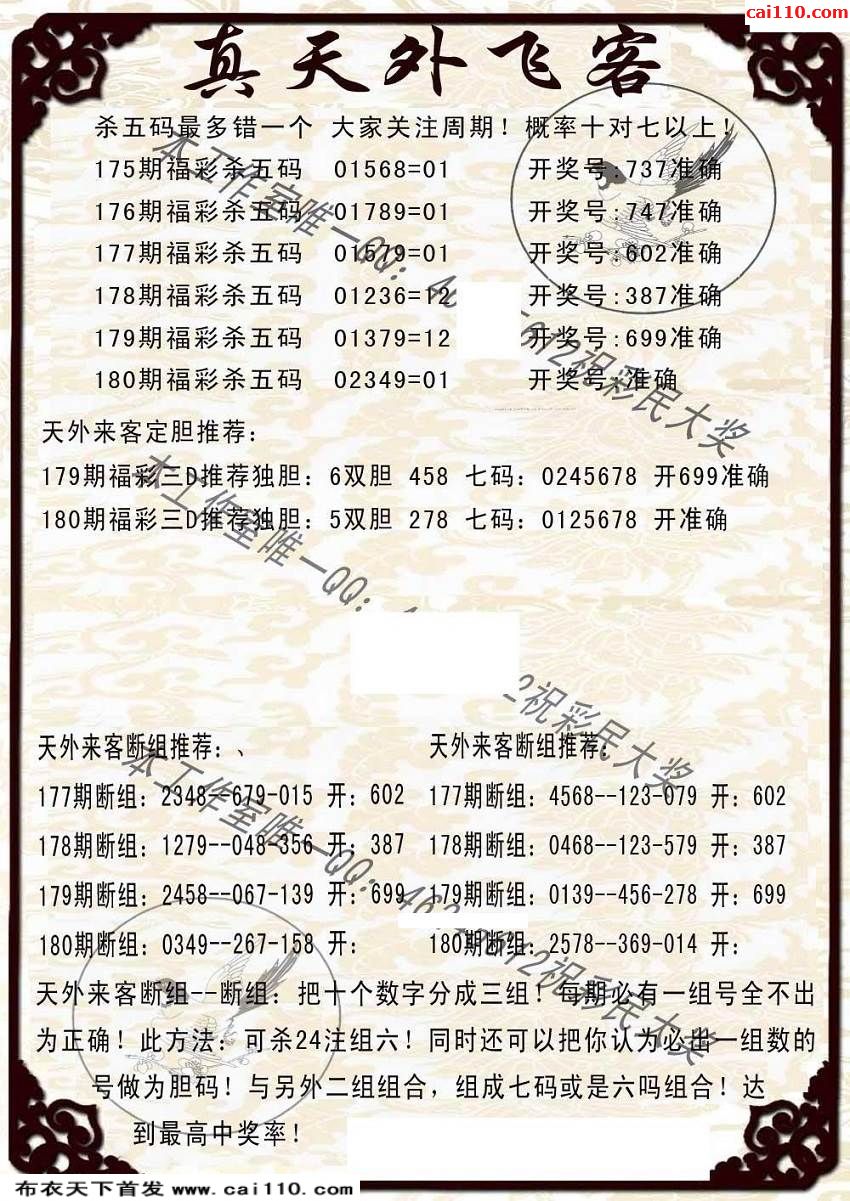 cai110.com
真天外飞客
杀五码最多错一个 大家关注周期！概率十对七以上！
175期福彩杀五码 01568=01 开奖号:737准确
176期福彩杀五码 01789=01 开奖号:747准确
177期福彩杀五码 01579=01 开奖号:602准确
178期福彩杀五码 01236=12 开奖号:387准确
179期福彩杀五码 01379=12 开奖号:699准确
180期福彩杀五码 02349=01 开奖号:准确
天外来客定胆推荐：
179期福彩三D推荐独胆：6双胆 458 七码：0245678 开699准确
180期福彩三D推荐独胆：5双胆 278 七码：0125678 开准确
天外来客断组推荐：、 天外来客断组推荐：
177期断组：2348--679-015 开：602 177期断组：4568--123-079 开：602
178期断组：1279--048-356 开：387 178期断组：0468--123-579 开：387
179期断组：2458--067-139 开：699 179期断组：0139--456-278 开：699
180期断组：0349--267-158 开： 180期断组：2578--369-014 开：
天外来客断组--断组：把十个数字分成三组！每期必有一组号全不出
为正确！此方法：可杀24注组六！同时还可以把你认为必出一组数的
号做为胆码！与另外二组组合，组成七码或是六吗组合！达
到最高中奖率！
本工作室唯一QQ：
祝彩民大奖
本工作室唯一QQ：
2祝彩民大奖
本工作室唯一QQ：
2祝彩民大奖
布衣天下首发 www.cai110.com